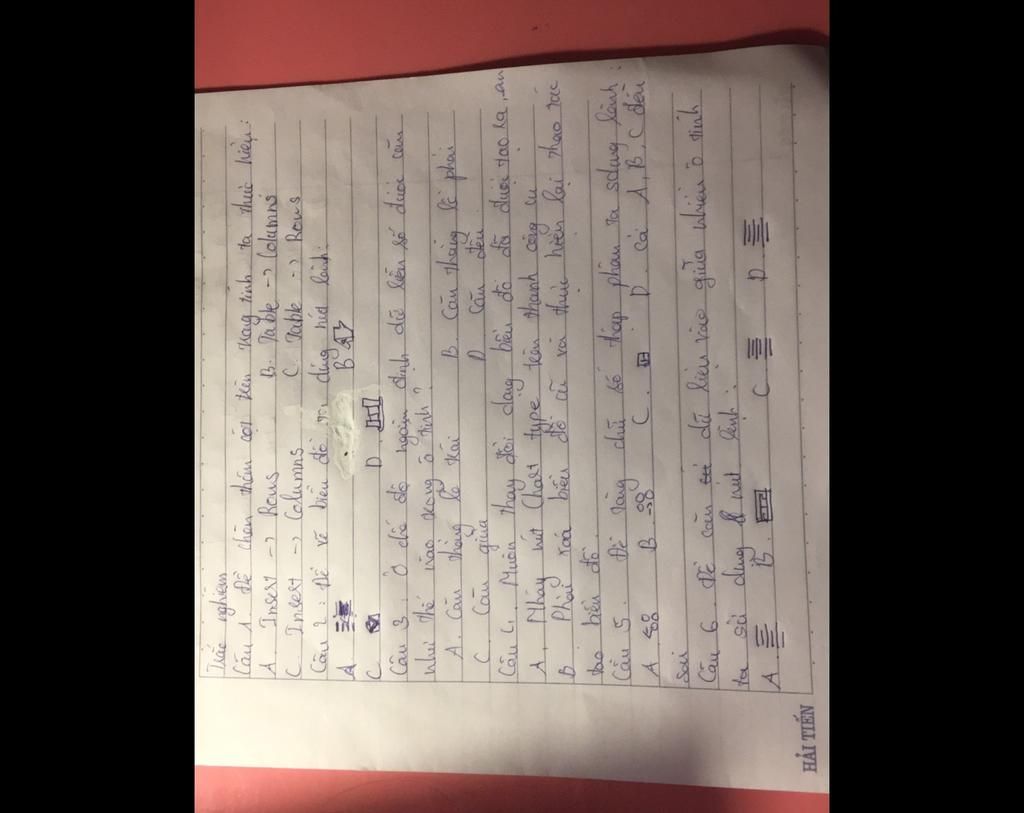 Trắc nghiệm
Câu 1. Để chèn thêm cột trên trang tính ta thực hiện:
A. Insert -> Rows B. Table -> Columns
C. Insert -> Columns C. Table -> Rows
Câu 2: Để vẽ biểu đồ dùng nút lệnh:
A. B
C. D.
Câu 3. Ở chế độ ngầm định dữ liệu số được căn
như thế nào trong ô tính?
A. Căn thẳng lề trái B. Căn thẳng lề phải
C. Căn giữa D Căn đều
Câu 4. Muốn thay đổi dạng biểu đồ đã được tạo ra, em
A, Nháy nút Chart type trên thanh công cụ
B Phải xoá biểu đồ cũ và thực hiện lại thao tác
tạo biểu đồ.
Câu 5. Để tăng chữ số thập phân ta sdụng lệnh:
A B. C. D. Cả A, B, C đều
sai
Câu 6. Để căn dữ liệu vào giữa nhiều ô tính
ta sử dụng nút lệnh:
A. B. C D.
HẢI TIẾN